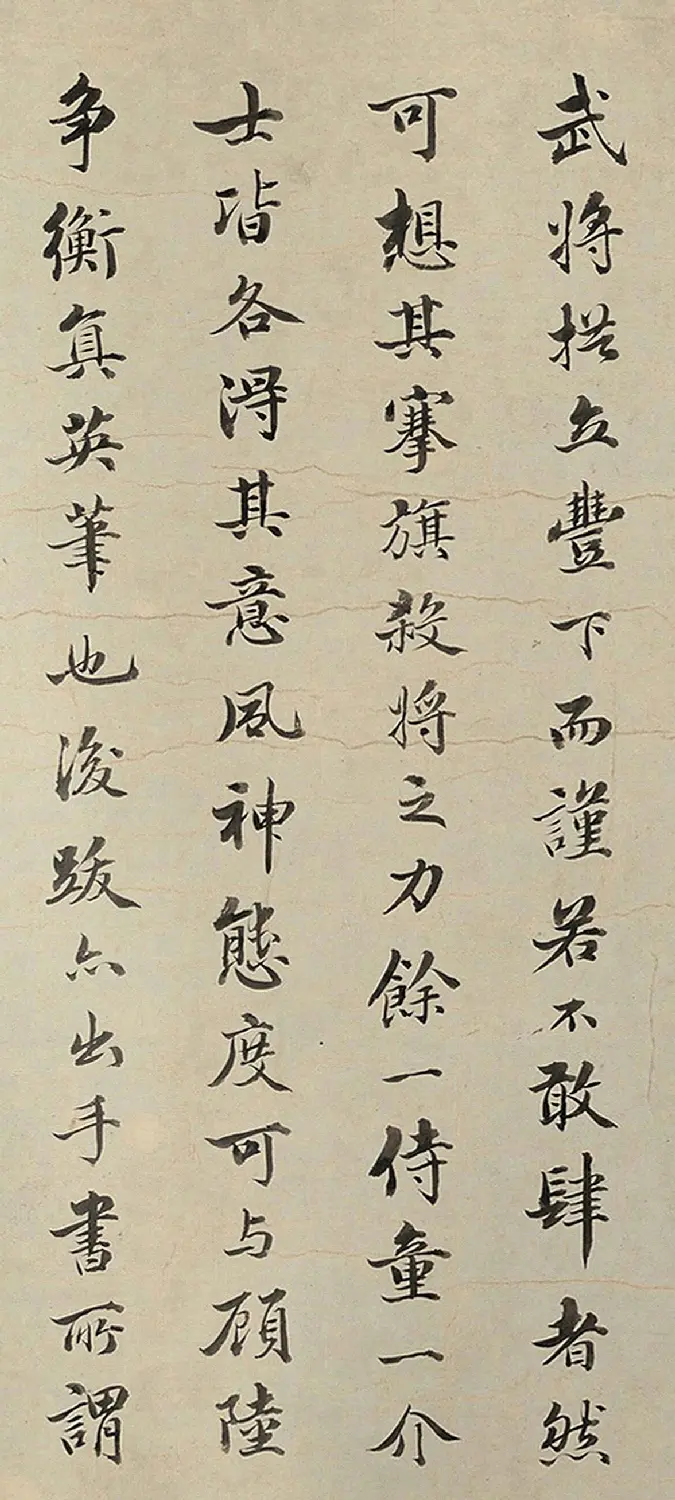 武将拱立豐下而謹若不敢肆者然
可想其搴旗殺将之力餘一侍童一介
士皆各得其意風神態度可与顧陸
争衡真英筆也後跋亦出手書所謂